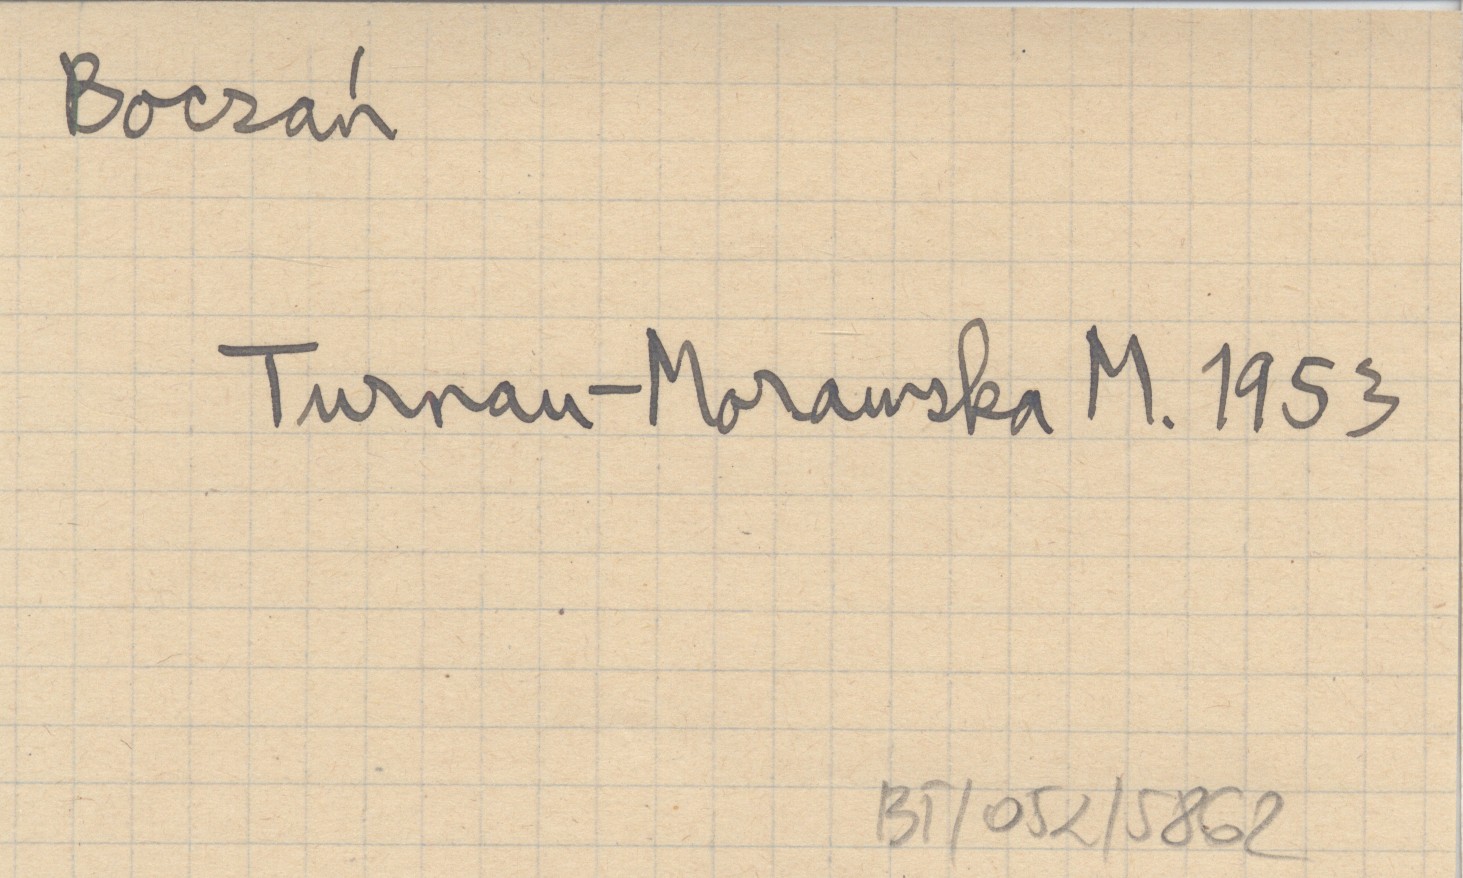 Boczań
Turnau-Morawska M. 1953
BT/052/5862